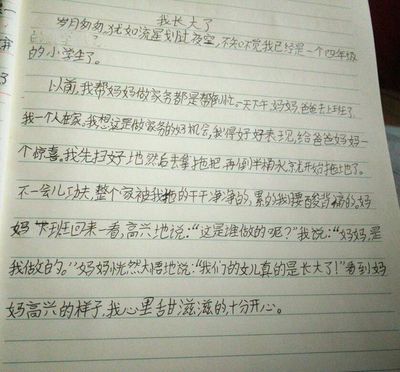 我长大了
岁月匆匆,犹如流星划过夜空,不知不觉我已经是一个四年级
的小学生了。
以前,我帮妈妈做家务都是帮倒忙。一天下午,妈妈爸爸去上班了,
我一个人在家。我想这是做家务的好机会,我得好好表现,给爸爸妈妈一
个惊喜。我先扫好地然后去拿拖把,再倒半桶水就开始拖地了。
不一会儿功夫,整个家被我拖的干干净净的,累的我腰酸背痛的。妈
妈下班回来一看,高兴地说:“这是谁做的呢?”我说:“妈妈,是
我做的。”妈妈恍然大悟地说:“我们的女儿真的是长大了!”看到妈
妈高兴的样子,我心里甜滋滋的,十分开心。